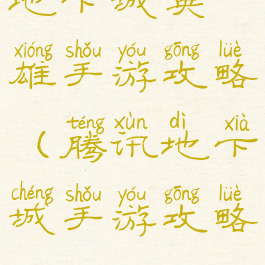 地下城英
xióng shǒu yóu gōng lüè
雄手游攻略
téng xùn dì xià
（腾讯地下
chéng shǒu yóu gōng lüè
城手游攻略